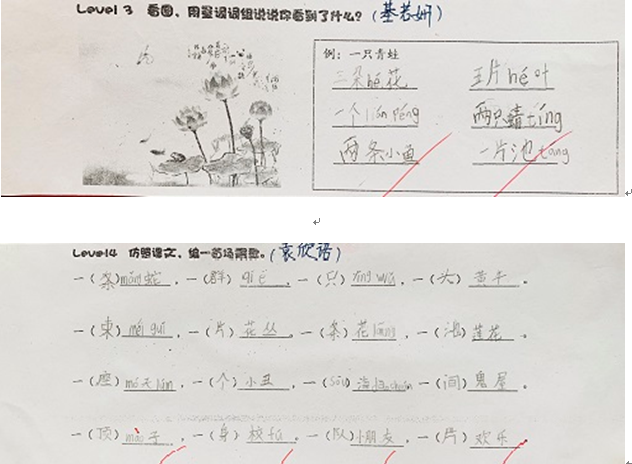 Level 3 看图，用量词词组说说你看到了什么？(基若妍)
例：一只青蛙
三朵hé花 五片hé叶
一个lián péng 两只蜻tíng
两条小鱼 一片池táng
Level4 仿照课文，编一首场景歌。(袁欣语)
一(条)mǎng蛇，一(群)qǐ é，一(只)，一(头)黄牛。
一(束)méi gui，一(片)花丛，一(条)花，一()莲花。
一(座)mó天lún，一(个)小丑，一(sōu)海dào chuán，一(间)鬼屋。
一(顶)mào子，一(身)校fú，一(队)小朋友，一(片)欢乐。